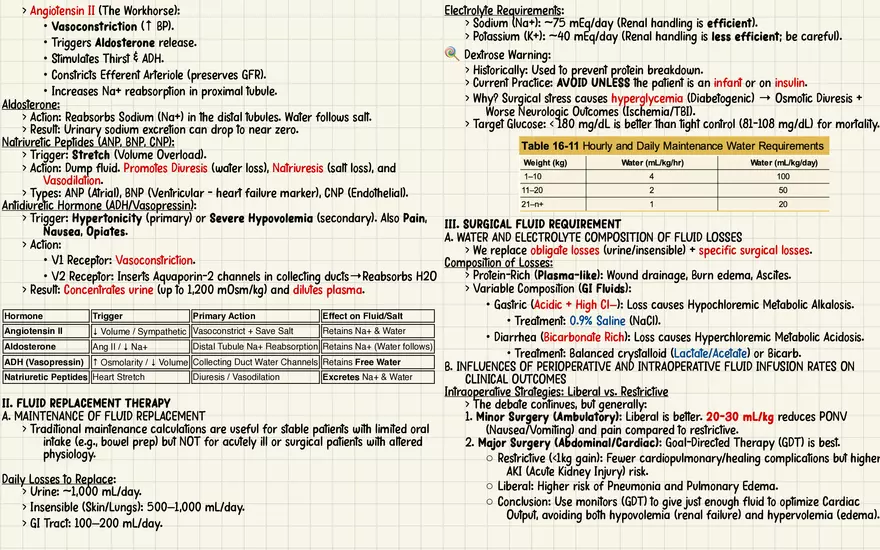 > Angiotensin II (The Workhorse):
• Vasoconstriction (↑ BP).
• Triggers Aldosterone release.
• Stimulates Thirst & ADH.
• Constricts Efferent Arteriole (preserves GFR).
• Increases Na+ reabsorption in proximal tubule.
Aldosterone:
> Action: Reabsorbs Sodium (Na+) in the distal tubules. Water follows salt.
> Result: Urinary sodium excretion can drop to near zero.
Natriuretic Peptides (ANP, BNP, CNP):
> Trigger: Stretch (Volume Overload).
> Action: Dump fluid. Promotes Diuresis (water loss), Natriuresis (salt loss), and
Vasodilation.
> Types: ANP (Atrial), BNP (Ventricular - heart failure marker), CNP (Endothelial).
Antidiuretic Hormone (ADH/Vasopressin):
> Trigger: Hypertonicity (primary) or Severe Hypovolemia (secondary). Also Pain,
Nausea, Opiates.
> Action:
• V1 Receptor: Vasoconstriction.
• V2 Receptor: Inserts Aquaporin-2 channels in collecting ducts→Reabsorbs H2O
> Result: Concentrates urine (up to 1,200 mOsm/kg) and dilutes plasma.
Hormone Trigger Primary Action Effect on Fluid/Salt
Angiotensin II ↓ Volume / Sympathetic Vasoconstrict + Save Salt Retains Na+ & Water
Aldosterone Ang II / ↓ Na+ Distal Tubule Na+ Reabsorption Retains Na+ (Water follows)
ADH (Vasopressin) ↑ Osmolarity / ↓ Volume Collecting Duct Water Channels Retains Free Water
Natriuretic Peptides Heart Stretch Diuresis / Vasodilation Excretes Na+ & Water
II. FLUID REPLACEMENT THERAPY
A. MAINTENANCE OF FLUID REPLACEMENT
> Traditional maintenance calculations are useful for stable patients with limited oral
intake (e.g., bowel prep) but NOT for acutely ill or surgical patients with altered
physiology.
Daily Losses to Replace:
> Urine: ~1,000 mL/day.
> Insensible (Skin/Lungs): 500–1,000 mL/day.
> GI Tract: 100–200 mL/day.
Electrolyte Requirements:
> Sodium (Na+): ~75 mEq/day (Renal handling is efficient).
> Potassium (K+): ~40 mEq/day (Renal handling is less efficient; be careful).
Dextrose Warning:
> Historically: Used to prevent protein breakdown.
> Current Practice: AVOID UNLESS the patient is an infant or on insulin.
> Why? Surgical stress causes hyperglycemia (Diabetogenic) → Osmotic Diuresis +
Worse Neurologic Outcomes (Ischemia/TBI).
> Target Glucose: < 180 mg/dL is better than tight control (81-108 mg/dL) for mortality.
Table 16-11 Hourly and Daily Maintenance Water Requirements
Weight (kg) Water (mL/kg/hr) Water (mL/kg/day)
1–10 4 100
11–20 2 50
21–n+ 1 20
III. SURGICAL FLUID REQUIREMENT
A. WATER AND ELECTROLYTE COMPOSITION OF FLUID LOSSES
> We replace obligate losses (urine/insensible) + specific surgical losses.
Composition of Losses:
> Protein-Rich (Plasma-like): Wound drainage, Burn edema, Ascites.
> Variable Composition (GI Fluids):
• Gastric (Acidic + High Cl–): Loss causes Hypochloremic Metabolic Alkalosis.
• Treatment: 0.9% Saline (NaCl).
• Diarrhea (Bicarbonate Rich): Loss causes Hyperchloremic Metabolic Acidosis.
• Treatment: Balanced crystalloid (Lactate/Acetate) or Bicarb.
B. INFLUENCES OF PERIOPERATIVE AND INTRAOPERATIVE FLUID INFUSION RATES ON
CLINICAL OUTCOMES
Intraoperative Strategies: Liberal vs. Restrictive
> The debate continues, but generally:
1. Minor Surgery (Ambulatory): Liberal is better. 20-30 mL/kg reduces PONV
(Nausea/Vomiting) and pain compared to restrictive.
2. Major Surgery (Abdominal/Cardiac): Goal-Directed Therapy (GDT) is best.
○ Restrictive (<1kg gain): Fewer cardiopulmonary/healing complications but higher
AKI (Acute Kidney Injury) risk.
○ Liberal: Higher risk of Pneumonia and Pulmonary Edema.
○ Conclusion: Use monitors (GDT) to give just enough fluid to optimize Cardiac
Output, avoiding both hypovolemia (renal failure) and hypervolemia (edema).